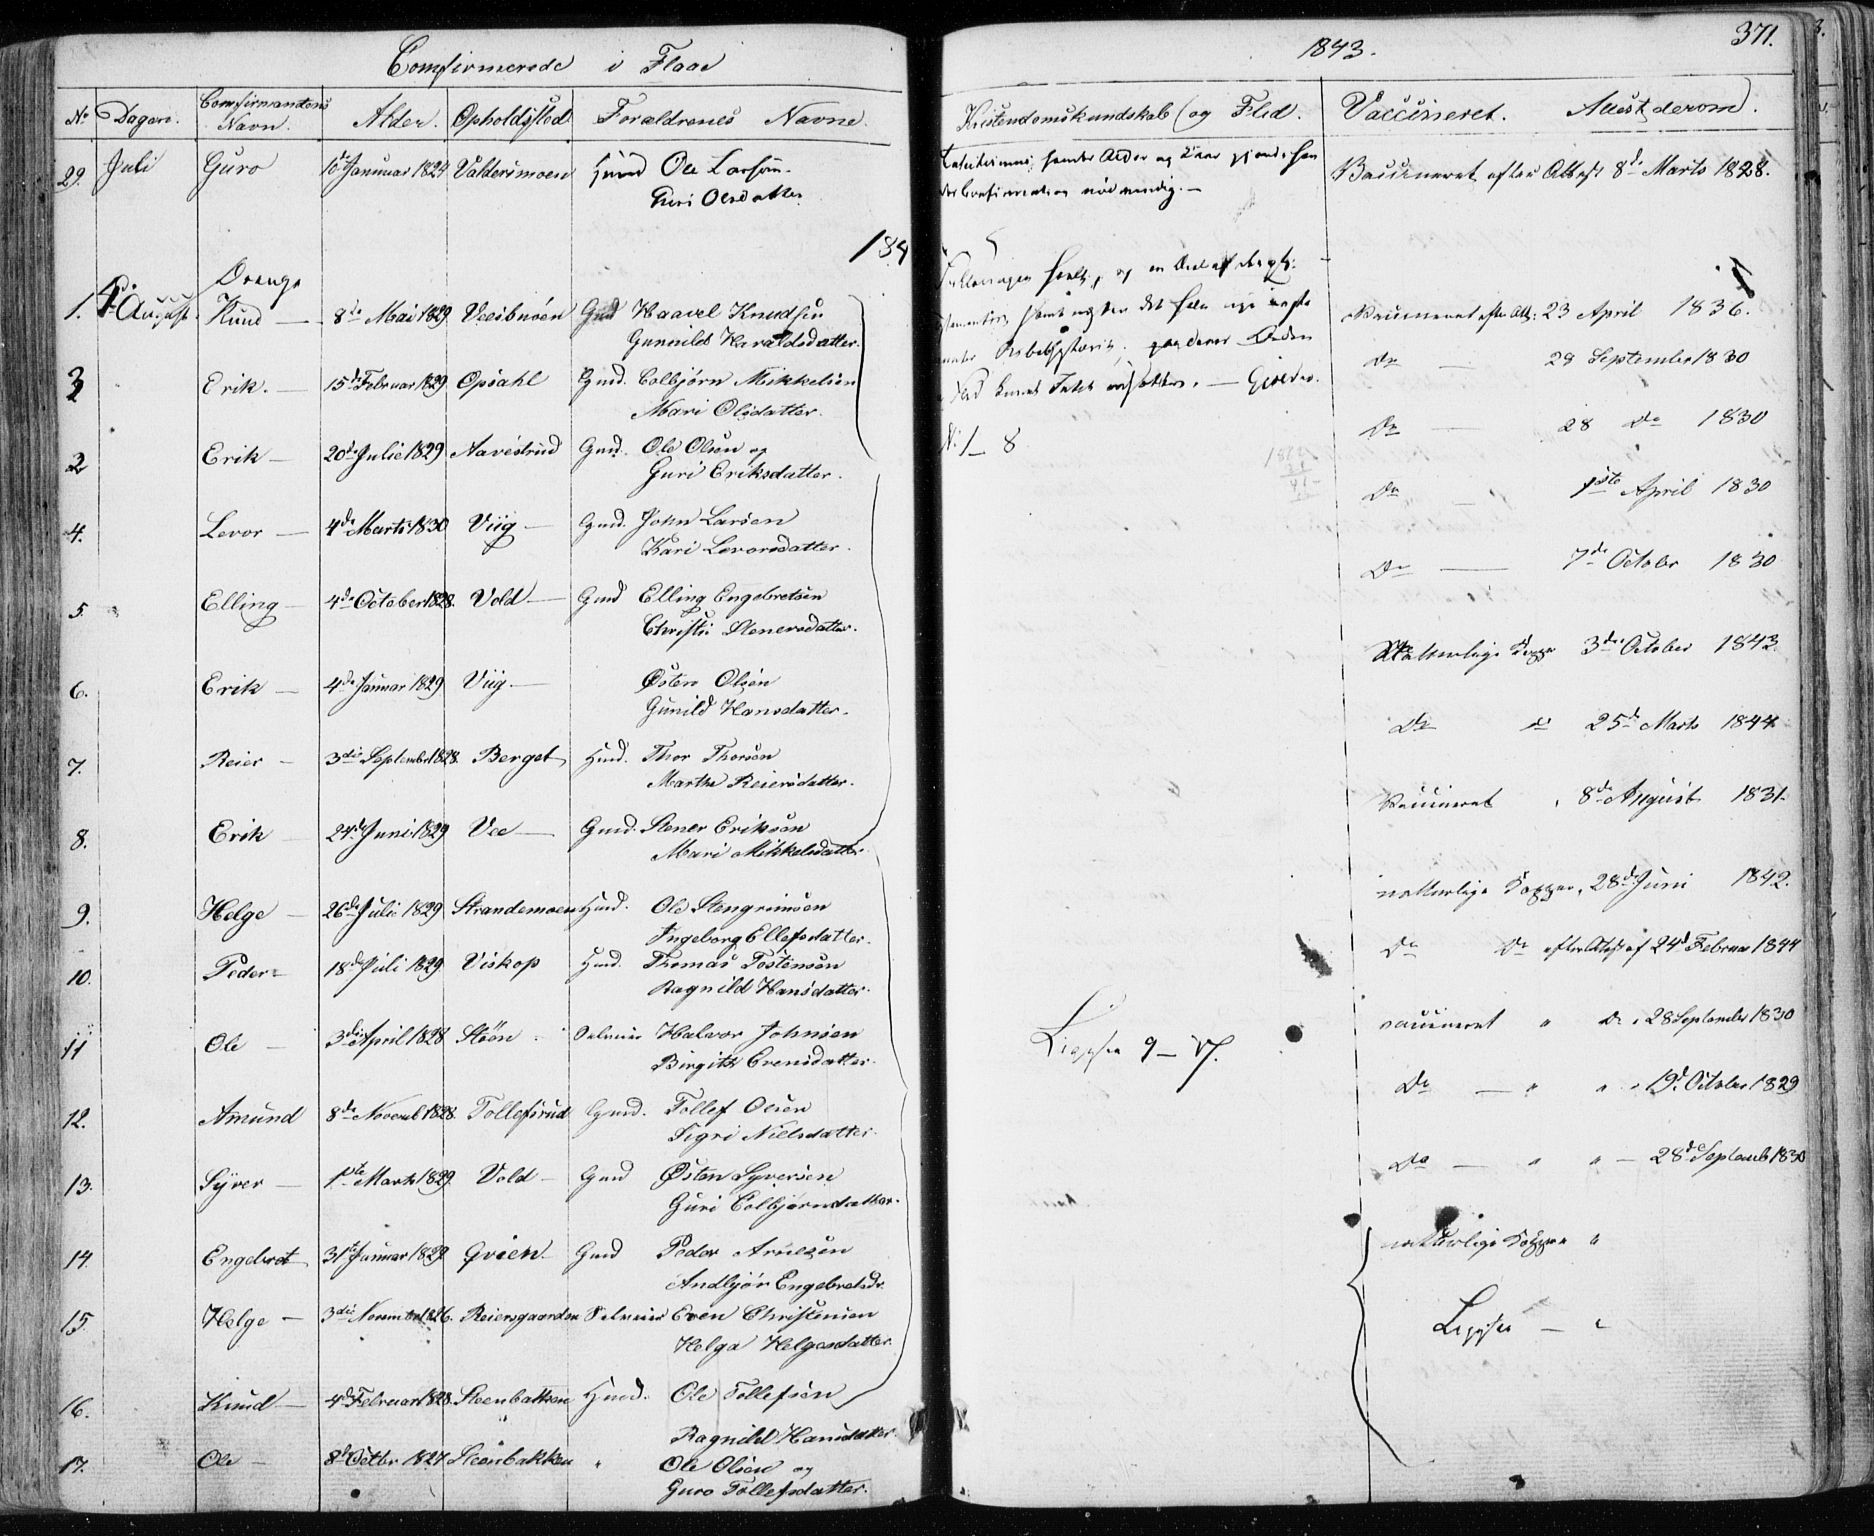 Comfirmerede i Flaae
1843.
371.
No Dagen. Comfirmandens Navn. Alder. Opholdsted Forældrenes Navne.
Kristendomskundskab (og Flid. Vaccineret. Attest derom.
29. Juli Guro 10de Januar 1824 Valdersmoen Huusd Ole Larsøn.
Guri Olesdatter
Vaccineret efter Attest 8de Marts 1828.
Confirmation nødvendig. —
184
Drenge
1. August Knud — 8de Mai 1829 Veesbnøen Gmd Haavel Knudsen
Gunnild Haraldsdatter.
Vaccineret efter Att: 23 April 1836.
Erik. — 15de Februar 1829 Opsahl Gmd. Colbjørn Mikkelsen
Mari Olsdatter.
Do — 28 September 1830
2 Erik — 20de Julie 1829 Aavestrud Gmd. Ole Olsen og
Guri Eriksdatter.
No 1 — 8
Do — 28 Do 1830
4. Levor — 4de Marts 1830 Viig — Gmd. John Larsen
Kari Levorsdatter.
Do — 1ste April 1830
5. Elling — 4de October 1828. Vold — Gmd Elling Engebretsen
Christi Stenersdatter.
Do — 7de October 1830
6. Erik — 4de Januar 1829 Viig. — Østen Olsen
Gunild Hansdatter.
Naturlige Kopper 3de October 1843.
7. Reier — 3die September 1828. Berget Husd. Thor Thorsen
Marthe Reiersdatter.
Do do 25de Marts 1844
8. Erik — 24de Juni 1829 Vee — Gmd. Stener Eriksøn
Mari Mikkelsdatter.
Vaccineret 8de August 1831.
9. Helge — 26de Juli 1829 Strandemoen Husd. Ole Stengrimsen
Ingeborg Ellefsdatter.
naturlige Kopper, 28de Juni 1842.
10. Peder — 18de Juli 1829 Viskop Husd. Thomas Tostensøn
Ragnild Hansdatter.
Do Do efter Attest af 24d Februar 1844
11 Ole — 3die April 1828 Støen Selveier Halvor Johnsen
Birgitte Evensdatter.
Ligesaa 9 — 17.
vaccineret " Do 28 September 1830
12. Amund 8de Novemb 1828. Tollefsrud Gmd. Tollef Olsen
Sigri Nielsdatter.
Do — " " 19d October 1829
13. Syver — 1ste Marts 1829 Vold — Gmd Østen Syversen
Guri Colbjørnsdatter.
Do — " " — 28de Septemb 1830
14. Engebret 31te Januar 1829 Gvien — Gmd Peder Arnesøn
Andbjør Engebretsdr.
naturlige Kopper "
15. Helge — 3die November 1826. Reiersgaarden Selveier Even Christensen
Helga Helgesdatter
Ligesaa — "
16. Knud — 4de Februar 1828. Steenbakken Husd. Ole Tollefsen
Ragnild Hansdatter
17. Ole — 8d Octbr 1827 Steenbakken " Ole Olsen og
Guro Tollefsdatter.